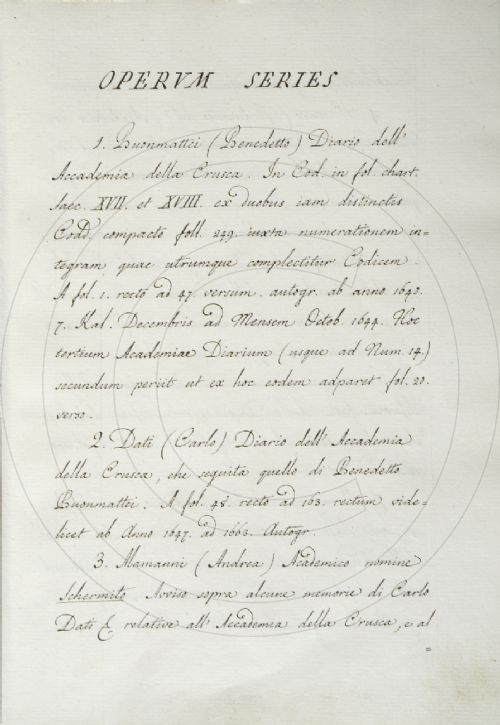 OPERVM SERIES
1. Buonmattei (Benedetto) Diario dell'
Accademia della Crusca. In Cod. in fol. chart.
saec. XVII. et XVIII. ex duobus iam distinctis
Codd. compacto foll. 249. iuxta numerationem in=
tegram quae utrumque complectitur Codicem.
A fol. 1. recto ad 47. versum. autogr. ab anno 1640.
7. Kal. Decembris ad Mensem Octob. 1644. Hoc
tertium Academiae Diarium (usque ad Num. 14.)
secundum periit ut ex hoc eodem adparet fol. 20.
verso.
2. Dati (Carlo) Diario dell' Accademia
della Crusca, che seguita quello di Benedetto
Buonmattei. A fol. 48. recto ad 163. rectum vide=
licet ab Anno 1647. ad 1663. Autogr.
3. Alamanni (Andrea) Academico nomine
Schermito Avviso sopra alcune memorie di Carlo
Dati &. relative all' Accademia della Crusca, e al
=